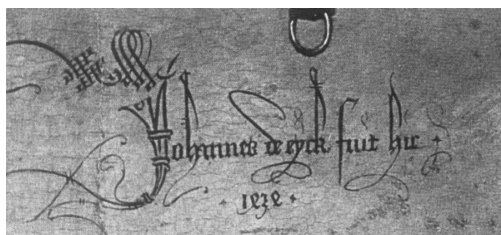 Johannes de eyck fuit hic .
. 1434 .